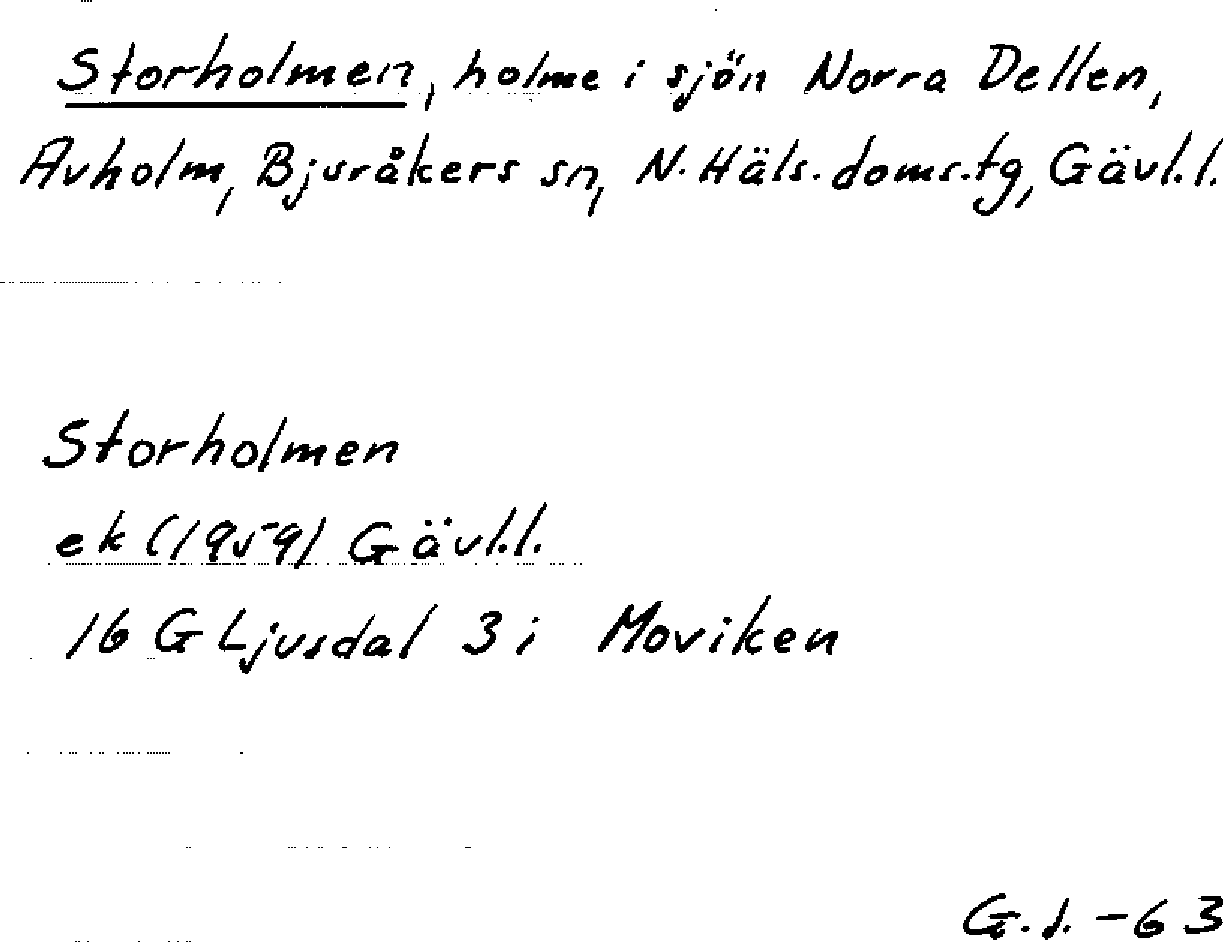 Storholmen, holme i sjön Norra Dellen,
Avholm, Bjuråkers sn, N. Häls. doms.tg, Gävl.l.
Storholmen
ek (1959) Gävl.l.
16 G Ljusdal 3 i Moviken
G.d. -63